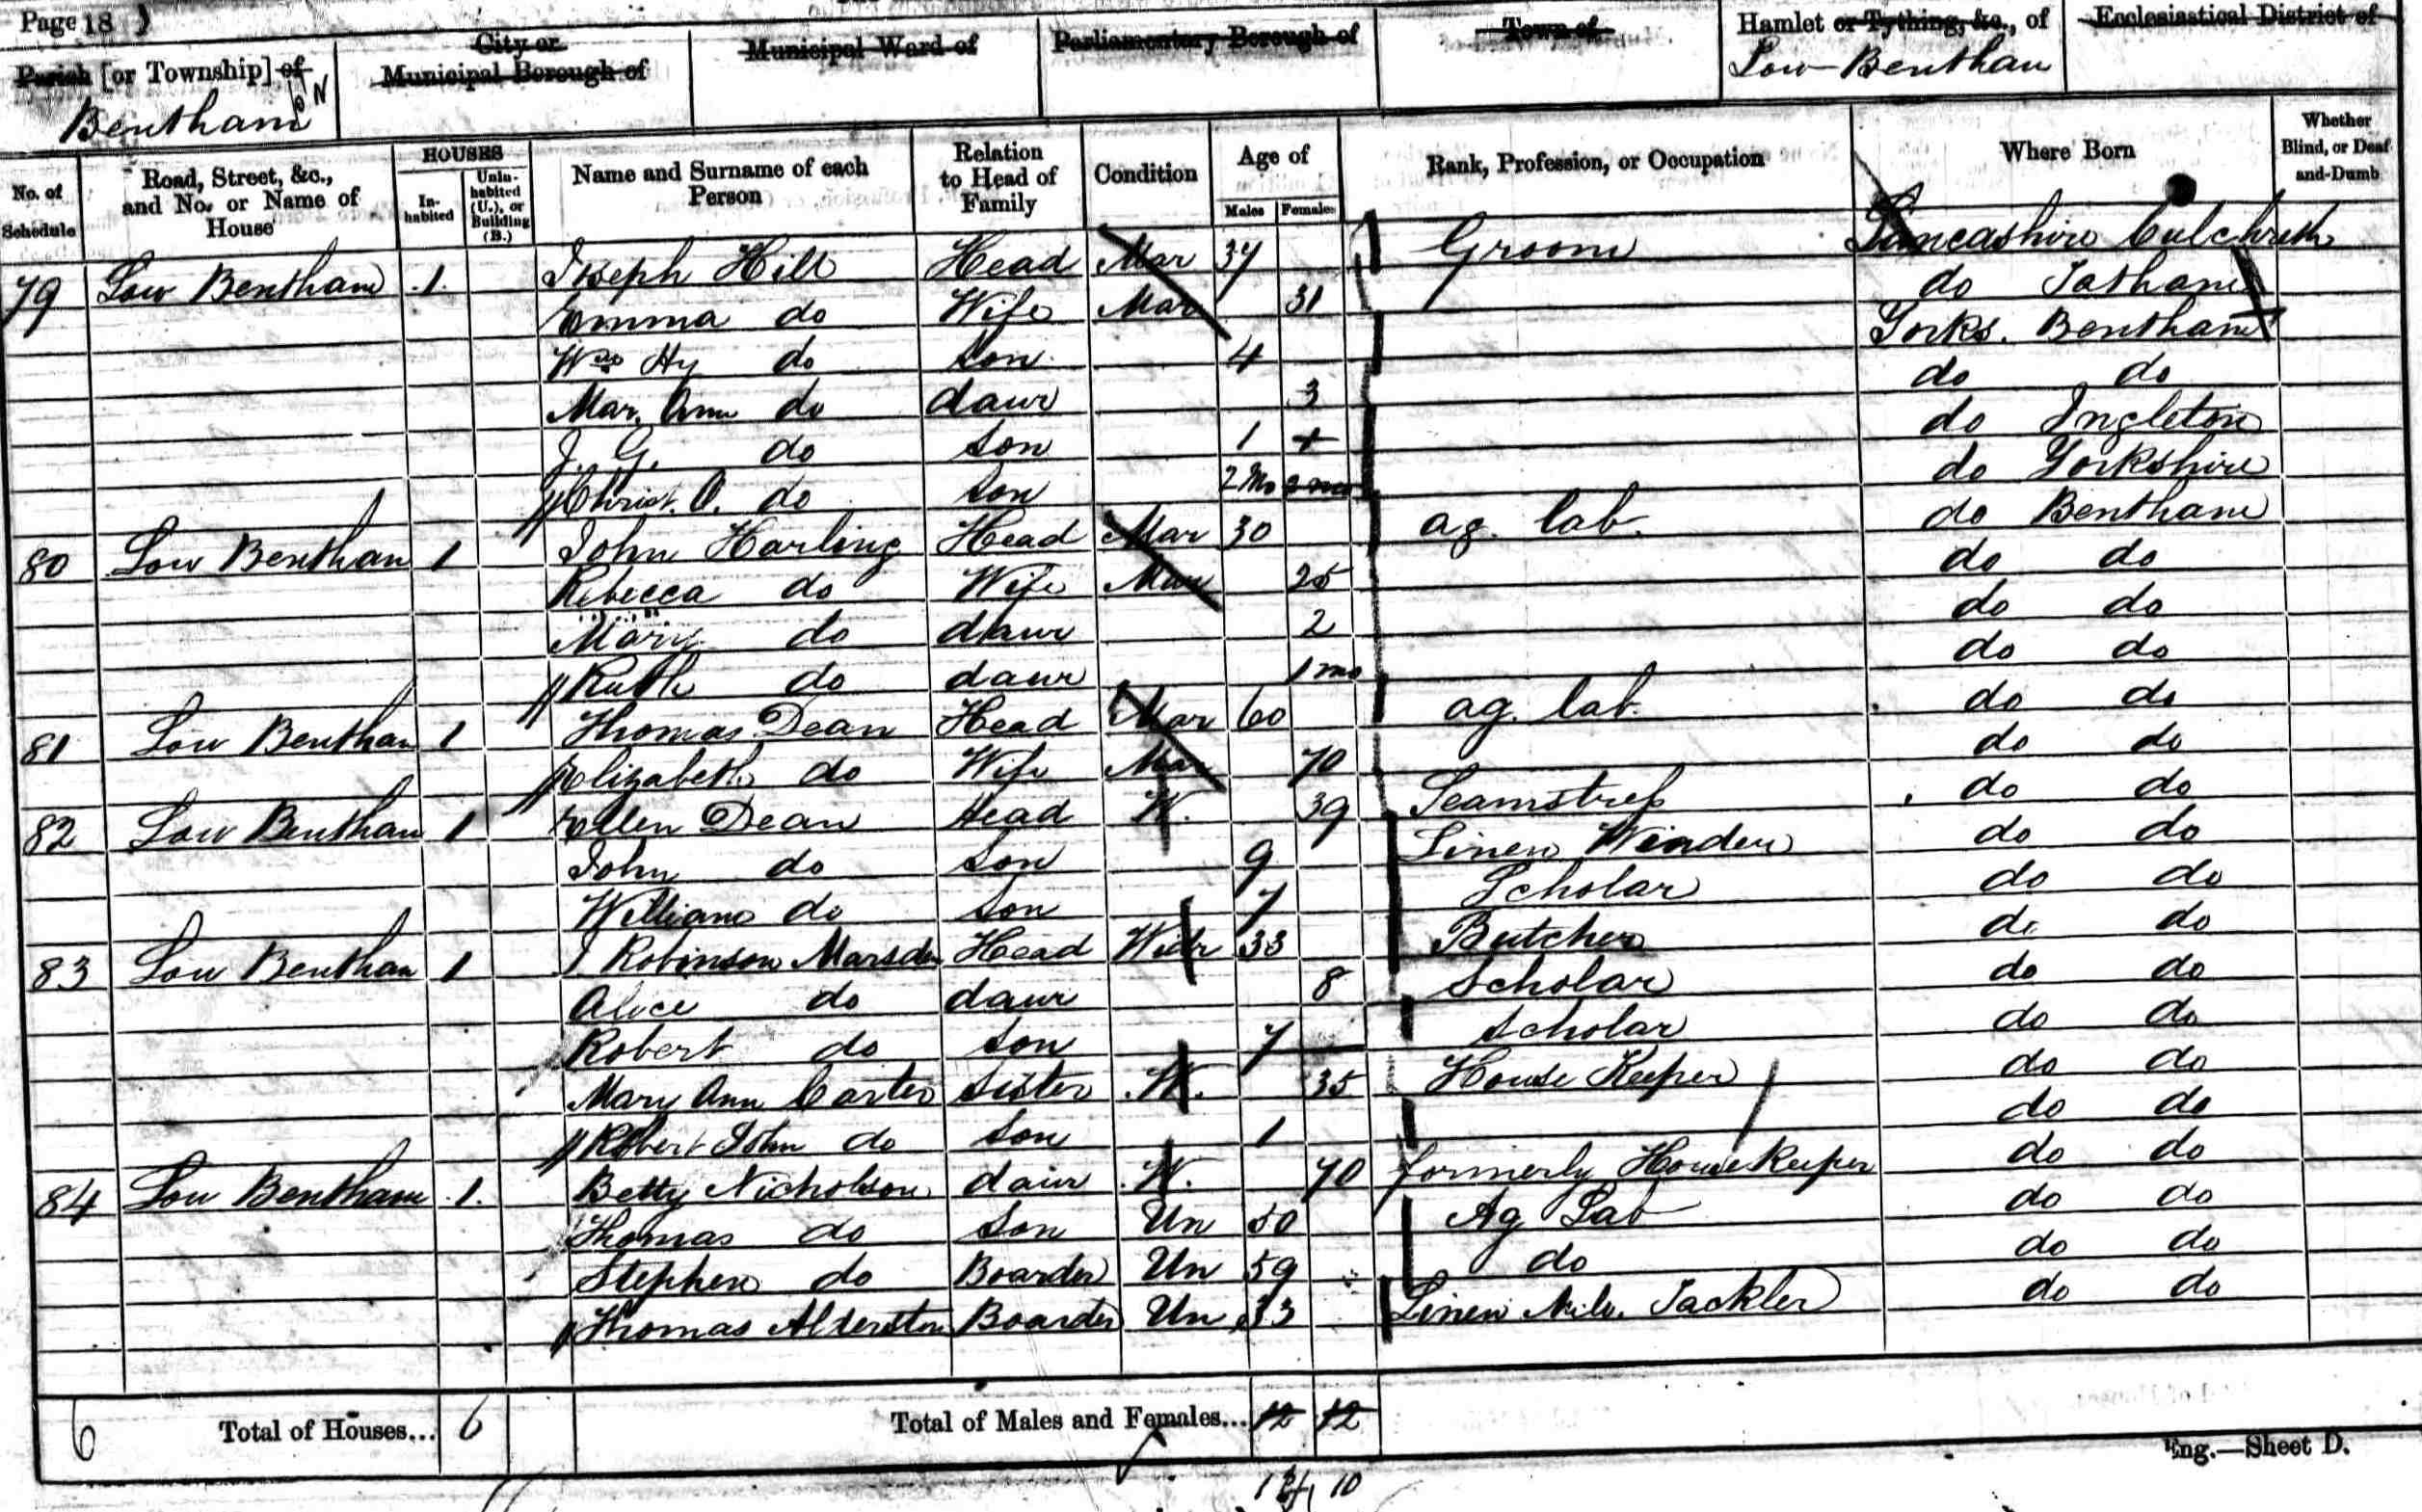 Page 18 )
Parish [or Township] of
Bentham
City or
Municipal Borough of
Municipal Ward of
Parliamentary Borough of
Town of
Hamlet or Tything, &c., of
Low Bentham
Ecclesiastical District of
No. of Schedule
Road, Street, &c., and No. or Name of House
HOUSES
In-habited
Unin-habited (U.), or Building (B.)
Name and Surname of each Person
Relation to Head of Family
Condition
Age of
Males Females
Rank, Profession, or Occupation
Where Born
Whether Blind, or Deaf-and-Dumb
79 Low Bentham 1 Joseph Hill Head Mar 37 Groom Lancashire Culcheth
Emma do Wife Mar 31 do Tatham
Wm Hy do Son 4 Yorks. Bentham
Mar. Ann do daur 3 do do
J. G. do Son 1 do Ingleton
Christ. O. do Son 2 Mo 2 mo do Yorkshire
80 Low Bentham 1 John Harling Head Mar 30 ag. lab. do Bentham
Rebecca do Wife Mar 25 do do
Mary do daur 2 do do
Ruth do daur 1 mo do do
81 Low Bentham 1 Thomas Dean Head Mar 60 ag. lab. do do
Elizabeth do Wife Mar 70 do do
82 Low Bentham 1 Ellen Dean Head W. 39 Seamstress do do
John do Son 9 Linen Winder do do
William do Son 7 Scholar do do
83 Low Bentham 1 J Robinson Marsden Head Widr 33 Butcher do do
Alice do daur 8 Scholar do do
Robert do Son 7 Scholar do do
Mary Ann Carter Sister W. 35 House Keeper do do
Robert John do Son 1 do do
84 Low Bentham 1. Betty Nicholson daur W. 70 formerly House Keeper do do
Thomas do Son Un 50 Ag Lab do do
Stephen do Boarder Un 59 do do do
Thomas Alderston Boarder Un 33 Linen Mill Tackler do do
6 Total of Houses... 6 Total of Males and Females... 12 12
10
Eng.—Sheet D.